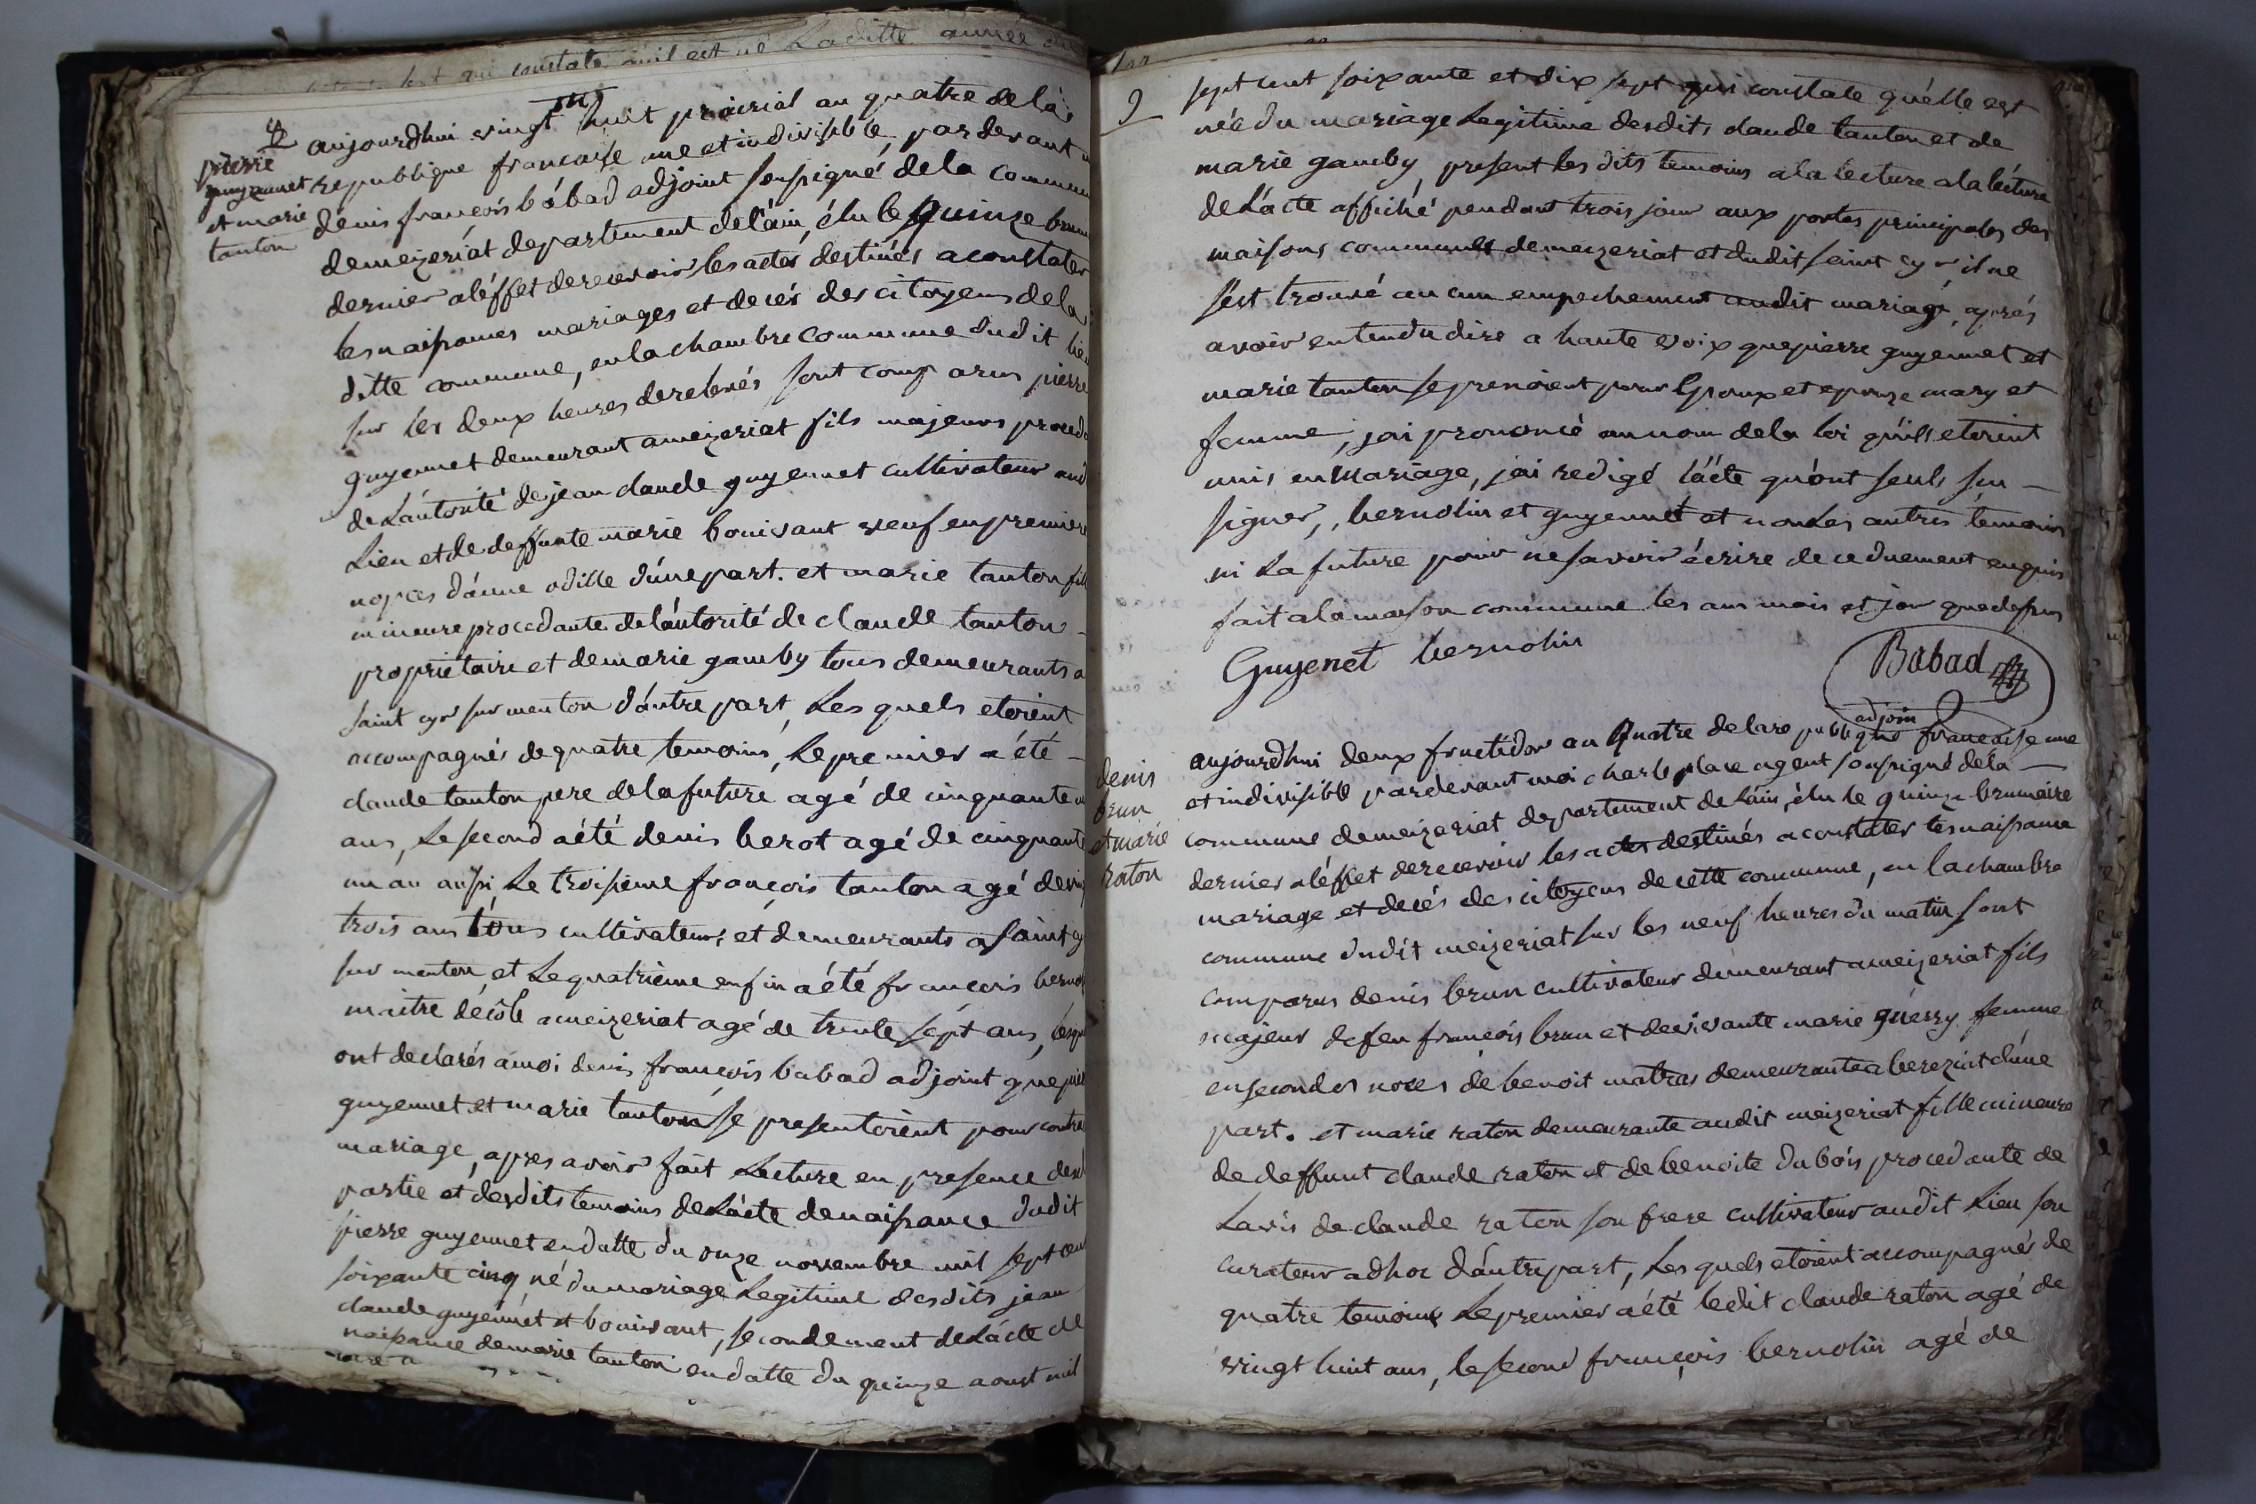 qui constate qu'il est né Laditte année
pierre
guyennet
et marie
tanton
aujourdhui vingt huit prairial an quatre de la
republique francaise une et indivisible, par devant
denis françois babad adjoint soussigné de la commun
demeizeriat departement de l'ain, élu le quinze brum
dernier a léffet de recevoir les actes destinés a constater
les naissances mariages et decés des citoyens de la
ditte commune, en la chambre commune dudit lieu
sur les deux heures de relevés sont comparus pierre
guyennet demeurant a meizeriat fils majeurs proced
de Láutorité de jean claude guyennet cultivateur aud
Lieu et de deffunte marie bouivant veuf en premiere
nopces dánne odille dúne part. et marie tanton fill
mineure procedante de láutorité de claude tanton -
propriétaire et de marie gamby tous demeurants a
saint cyr sur menton dáutre part, Les quels etoient
accompagnés de quatre temoins, Le premier a été -
claude tanton pere de la future agé de cinquante
ans, Le second a été denis berot agé de cinquante
un an aussi, Le troisieme françois tanton agé de vin
trois ans tous cultivateurs et demeurants a saint cy
sur menton et Le quatrieme enfin a été françois berno
maitre décole a meizeriat agé de trente sept ans, lesqu
ont declarés a moi denis françois babad adjoint que pier
guyennet et marie tanton se presentoient pour contra
mariage, apres avoir fait Lecture en presence desd
partie et desdits temoins de Lácte de naissance dudit
pierre guyennet en datte du onze novembre mil sept cen
soixante cinq né du mariage Legitime desdits jean
claude guyennet et bouivant, secondement de Lácte de
naissance de marie tanton en datte du quinze aoust mil
sept cent soixante et dix sept qui constate quélle est
née du mariage Legitime desdits claude tanton et de
marie gamby, present les dits temoins a la lecture a la lécture
de Lácte affiché pendant trois jour aux portes principales des
maisons communes de meizeriat et dudit saint cyr il ne
sést trouvé aucun empechement audit mariage, aprés
avoir entendu dire a haute voix que pierre guyennet et
marie tanton se prenoient pour Epoux et epouze mary et
femme, jai prononcé au nom de la loi quils etoient
unis en Mariage, jai redigé lácte qu'ont seuls su -
signer, bernolin et guyennet et non Les autres témoins
ni La future pour ne savoir écrire de ce duement enquis
fait a la maison commune les ans mois et jour que dessus
Guyenet bernolin
Babad
adjoin
denis
brun
et marie
raton
aujourdhui deux fructidor an Quatre de la republique francaise une
et indivisible pardevant moi charle place agent soussigné de la
commune demeizeriat departement de Láin, élu le quinze brumaire
dernier a léffet de recevoir les actes destinés a constater les naissance
mariage et decés des citoyens de cette commune, en la chambre
commune dudit meizeriat sur les neuf heures du matin sont
comparus denis brun cultivateur demeurant a meizeriat fils
majeur de feu françois brun et de vivante marie guérry femme
en secondes noces de benoit matras demeurante a bereziat dúne
part. et marie raton demeurante audit meizeriat fille mineure
de deffunt claude raton et de benoite dubois procedante de
Lavis de claude raton son frere cultivateur audit Lieu son
curateur adhoc dáutre part, Les quels etoient accompagnés de
quatre temoins Le premier a été ledit claude raton agé de
vingt huit ans, le second françois bernolin agé de